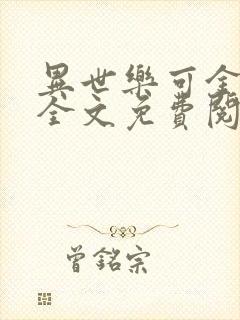 異世樂可金
全文免費閱
曾銘宗